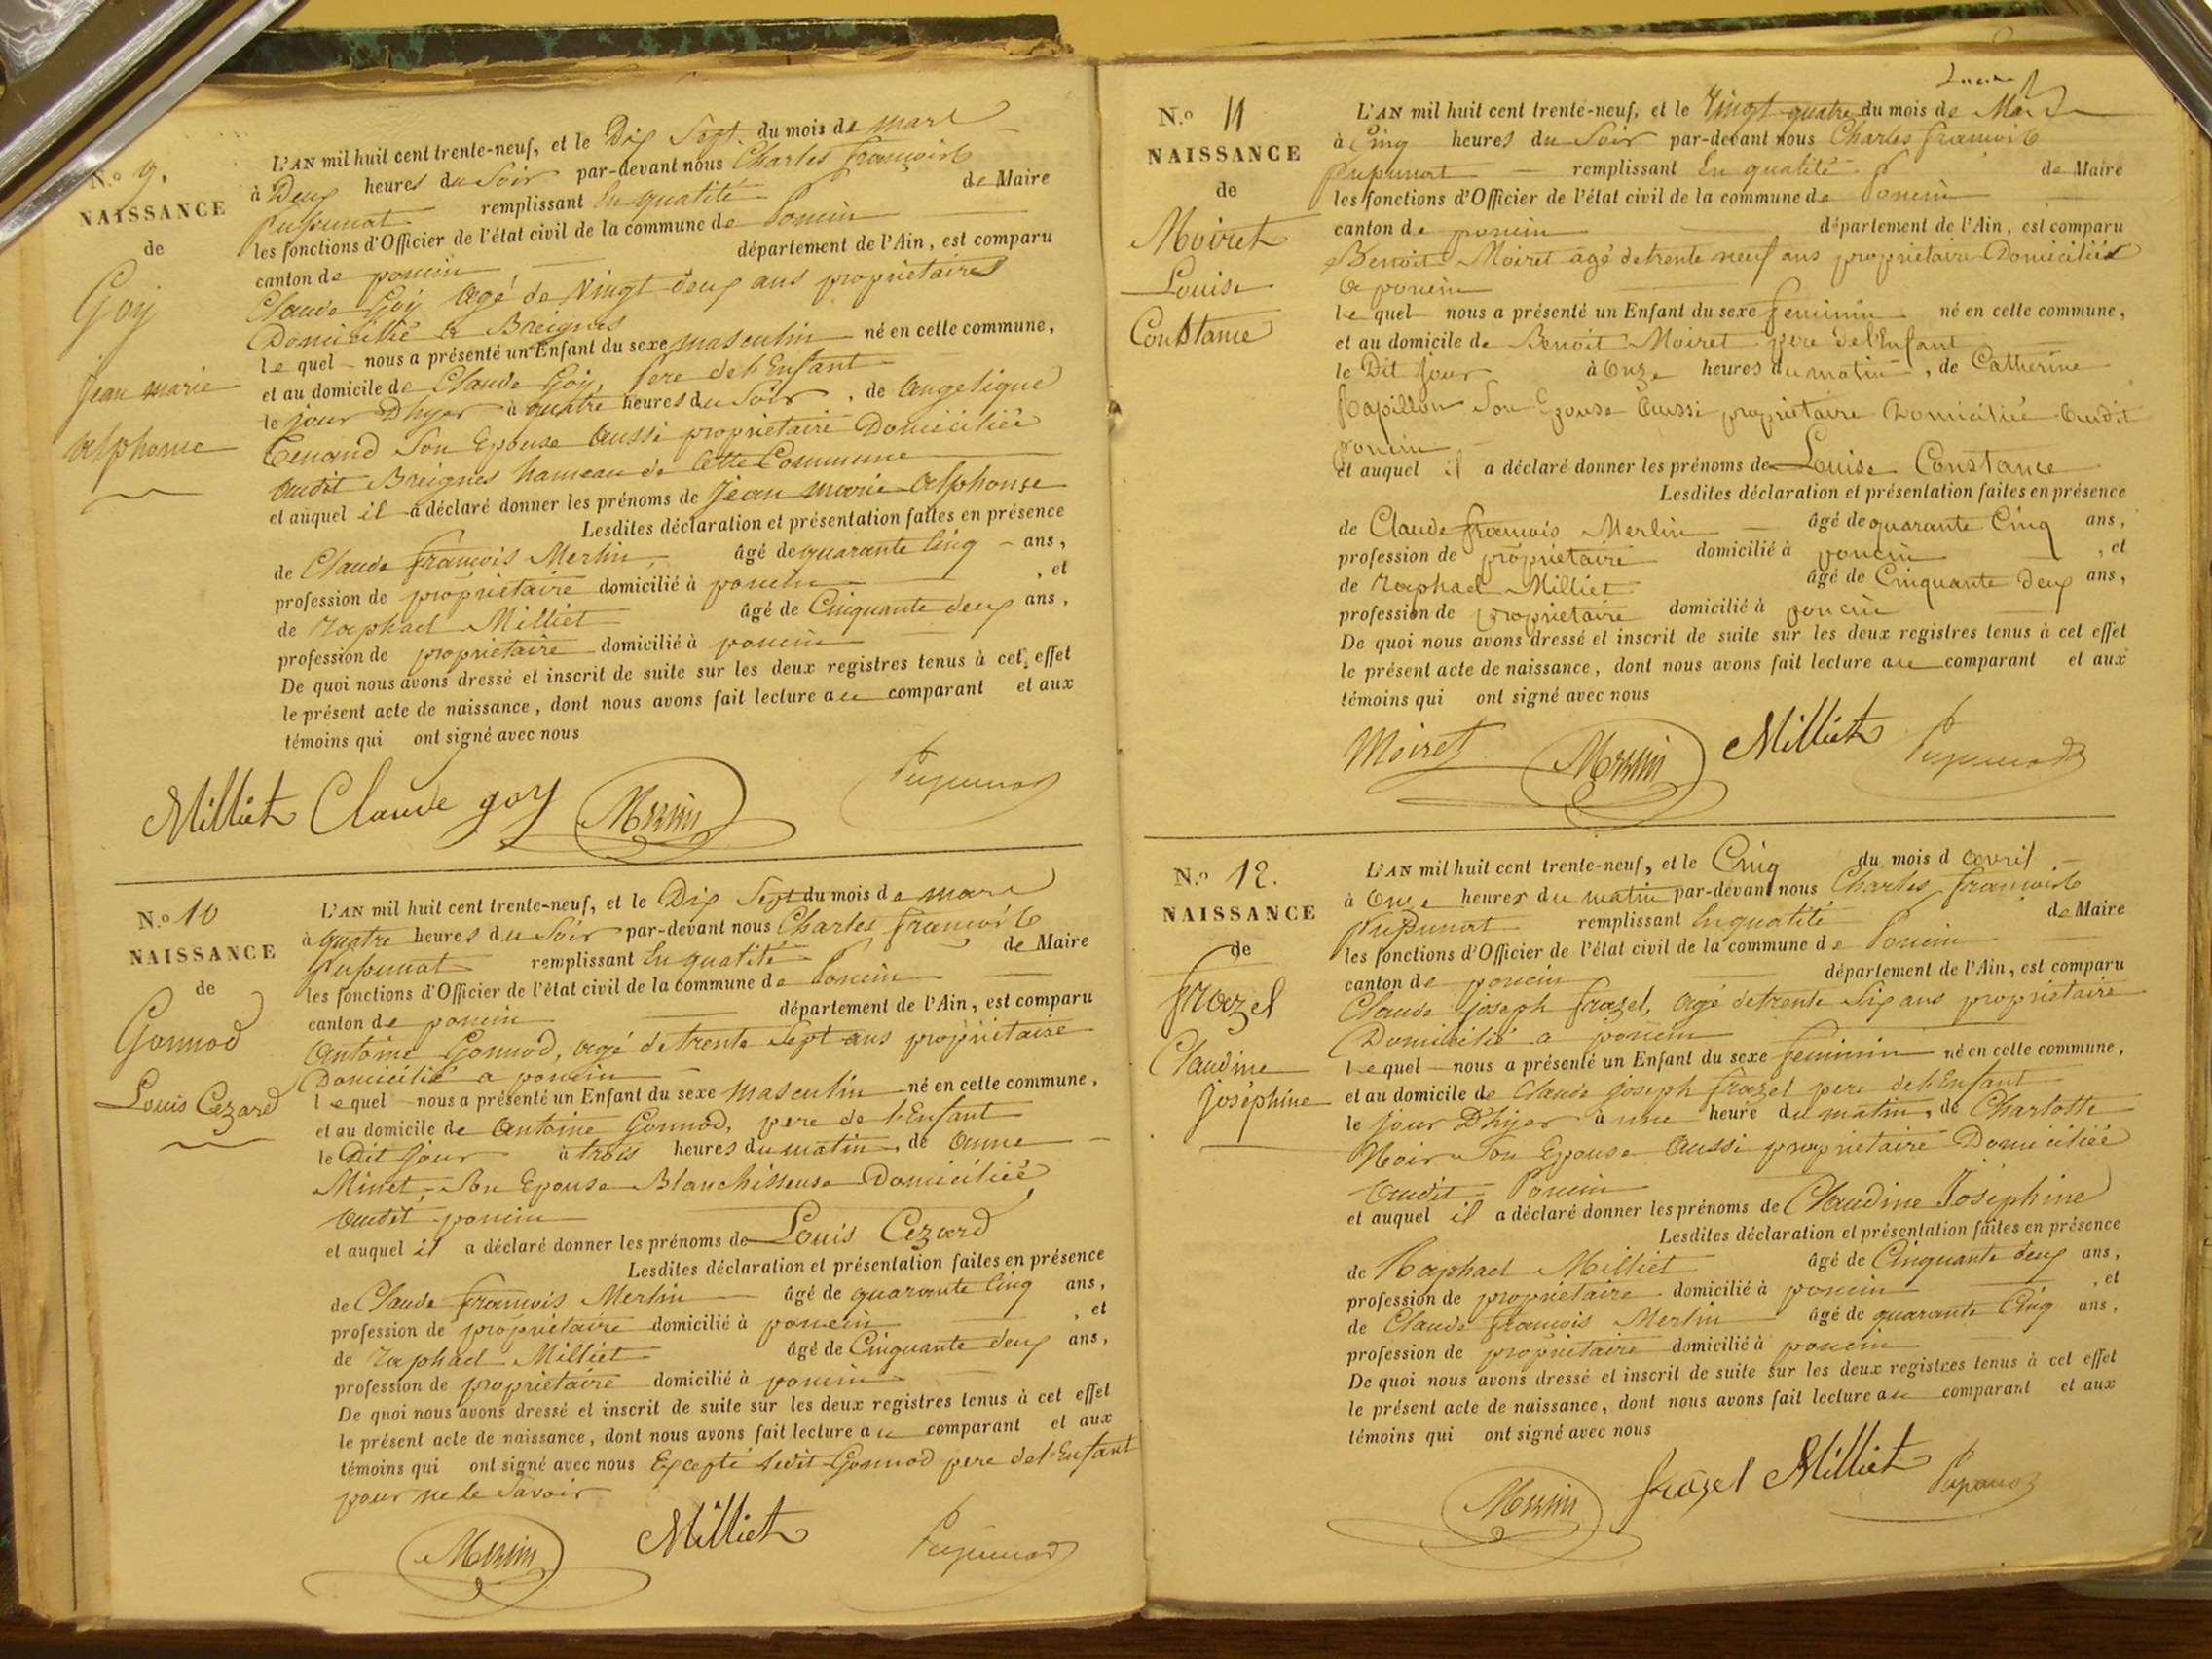 N.o 9.
NAISSANCE
de
Goy
jean marie
alphonse
L'AN mil huit cent trente-neuf, et le Dix Sept du mois de mars
à Deux heures du Soir par-devant nous Charles françois
Pupunat remplissant En qualité de Maire
les fonctions d'Officier de l'état civil de la commune de Poncin
canton de poncin, département de l'Ain, est comparu
Claude Goy agé de Vingt deux ans proprietaires
Domicillié a Breignes
lequel nous a présenté un Enfant du sexe masculin né en cette commune,
et au domicile de Claude Goy, pere de l'Enfant
le jour D'hyer à quatre heures du Soir, de Angelique
Tenand Son Epouse Aussi proprietaire Domiciliée
Audit Breignes hameau de Cette Commune
et auquel il a déclaré donner les prénoms de Jean marie alphonse
Lesdites déclaration et présentation faites en présence
de Claude françois Merlin, âgé de quarante Cinq ans,
profession de proprietaire domicilié à poncin, et
de raphael Milliet âgé de Cinquante deux ans,
profession de proprietaire domicilié à poncin
De quoi nous avons dressé et inscrit de suite sur les deux registres tenus à cet effet
le présent acte de naissance, dont nous avons fait lecture au comparant et aux
témoins qui ont signé avec nous
Milliet Claude goy Merlin Pupunat
N.o 10
NAISSANCE
de
Gonnod
Louis Cezard
L'AN mil huit cent trente-neuf, et le Dix Sept du mois de mars
à quatre heures du Soir par-devant nous Charles françois
Pupunat remplissant En qualité de Maire
les fonctions d'Officier de l'état civil de la commune de Poncin
canton de poncin département de l'Ain, est comparu
Antoine Gonnod, agé de trente Sept ans proprietaire
Domicilié a poncin
lequel nous a présenté un Enfant du sexe masculin né en cette commune,
et au domicile de Antoine Gonnod, pere de l'Enfant
le Dit jour à trois heures du matin, de Anne
Minet, Son Epouse Blanchisseuse Domiciliée
Audit poncin
et auquel il a déclaré donner les prénoms de Louis Cezard
Lesdites déclaration et présentation faites en présence
de Claude françois Merlin âgé de quarante Cinq ans,
profession de proprietaire domicilié à poncin, et
de raphael Milliet âgé de Cinquante deux ans,
profession de proprietaire domicilié à poncin
De quoi nous avons dressé et inscrit de suite sur les deux registres tenus à cet effet
le présent acte de naissance, dont nous avons fait lecture au comparant et aux
témoins qui ont signé avec nous Excepté ledit Gonnod pere de l'Enfant
pour ne le Savoir
Merlin Milliet Pupunat
N.o 11
NAISSANCE
de
Moiret
Louise
Constance
L'AN mil huit cent trente-neuf, et le Vingt quatre du mois de Mars
à Cinq heures du Soir par-devant nous Charles françois
Pupunat remplissant En qualité de Maire
les fonctions d'Officier de l'état civil de la commune de Poncin
canton de poncin département de l'Ain, est comparu
Benoit Moiret agé de trente neuf ans proprietaire Domicilié
a poncin
lequel nous a présenté un Enfant du sexe feminin né en cette commune,
et au domicile de Benoit Moiret pere de l'Enfant
le Dit jour à Onze heures du matin, de Catherine
Papillon Son Epouse Aussi proprietaire Domiciliée Audit
poncin
et auquel il a déclaré donner les prénoms de Louise Constance
Lesdites déclaration et présentation faites en présence
de Claude françois Merlin âgé de quarante Cinq ans,
profession de proprietaire domicilié à poncin, et
de raphael Milliet âgé de Cinquante deux ans,
profession de proprietaire domicilié à poncin
De quoi nous avons dressé et inscrit de suite sur les deux registres tenus à cet effet
le présent acte de naissance, dont nous avons fait lecture au comparant et aux
témoins qui ont signé avec nous
Moiret Merlin Milliet Pupunat
N.o 12.
NAISSANCE
de
frazel
Claudine
Joséphine
L'AN mil huit cent trente-neuf, et le Cinq du mois d avril
à Onze heures du matin par-devant nous Charles françois
Pupunat remplissant En qualité de Maire
les fonctions d'Officier de l'état civil de la commune de Poncin
canton de poncin département de l'Ain, est comparu
Claude joseph frazel, agé de trente Six ans proprietaire
Domicilié a poncin
lequel nous a présenté un Enfant du sexe feminin né en cette commune,
et au domicile de Claude joseph frazel pere de l'Enfant
le jour D'hyer à une heure du matin, de Charlotte
Noir Son Epouse Aussi proprietaire Domiciliée
Audit Poncin
et auquel il a déclaré donner les prénoms de Claudine Joséphine
Lesdites déclaration et présentation faites en présence
de Raphael Milliet âgé de Cinquante deux ans,
profession de proprietaire domicilié à poncin, et
de Claude françois Merlin âgé de quarante Cinq ans,
profession de proprietaire domicilié à poncin
De quoi nous avons dressé et inscrit de suite sur les deux registres tenus à cet effet
le présent acte de naissance, dont nous avons fait lecture au comparant et aux
témoins qui ont signé avec nous
Merlin frazel Milliet Pupunat